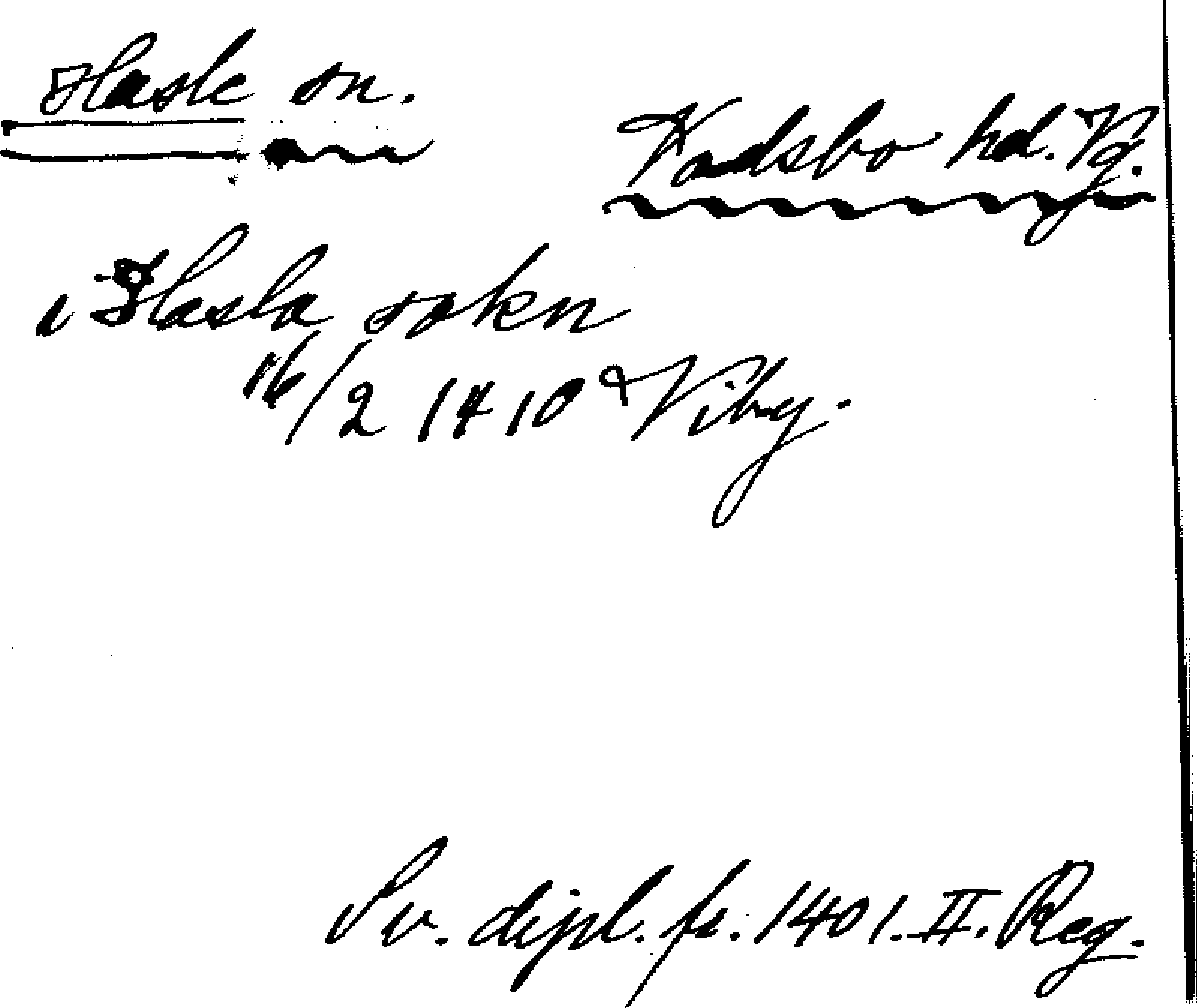 Hasle sn.
Vadsbo hd. Vg.
i Hasla sokn
16/2 1410 Viby.
Sv. dipl. fr. 1401. II. Reg.